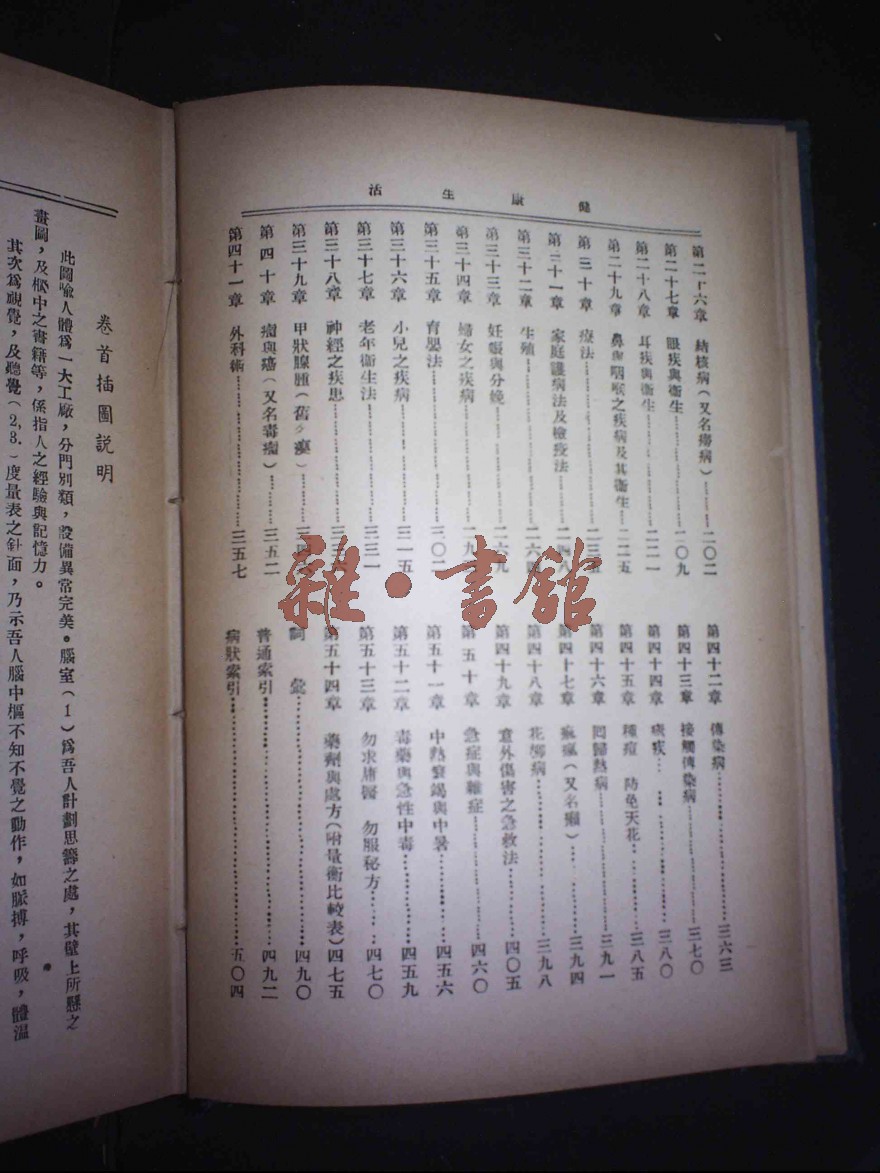 健康生活
第二十六章 結核病(又名癆病)……二〇二
第二十七章 眼疾與衛生……二〇九
第二十八章 耳疾與衛生……二二一
第二十九章 鼻與咽喉之疾病及其衛生……二二五
第三十章 療法……二三
第三十一章 家庭護病法及檢疫法……二四八
第三十二章 生殖……二六四
第三十三章 妊娠與分娩……二六九
第三十四章 婦女之疾病……二九
第三十五章 育嬰法……三〇二
第三十六章 小兒之疾病……三一五
第三十七章 老年衛生法……三三一
第三十八章 神經之疾患……三三
第三十九章 甲狀腺腫(舊名癭)……三四
第四十章 瘤與癌(又名毒瘤)……三五二
第四十一章 外科術……三五七
第四十二章 傳染病……三六三
第四十三章 接觸傳染病……三七〇
第四十四章 痰疾……三八〇
第四十五章 種痘 防免天花……三八五
第四十六章 回歸熱病……三九一
第四十七章 痲瘋(又名癩)……三九四
第四十八章 花柳病……三九八
第四十九章 意外傷害之急救法……四〇五
第五十章 急症與雜症……四六〇
第五十一章 中熱衰竭與中暑……四五六
第五十二章 毒藥與急性中毒……四五九
第五十三章 勿求庸醫 勿服秘方……四七〇
第五十四章 藥劑與處方(附量衡比較表)四七五
詞彙……四九〇
普通索引……四九二
病狀索引……五〇四
雜·書館
卷首插圖説明
此圖喻人體爲一大工廠,分門別類,設備異常完美。腦室(1)爲吾人計劃思籌之處,其壁上所懸之
畫圖,及櫥中之書籍等,係指人之經驗與記憶力。
其次爲視覺,及聽覺(2,3.)度量表之針面,乃示吾人腦中樞不知不覺之動作,如脈搏,呼吸,體溫